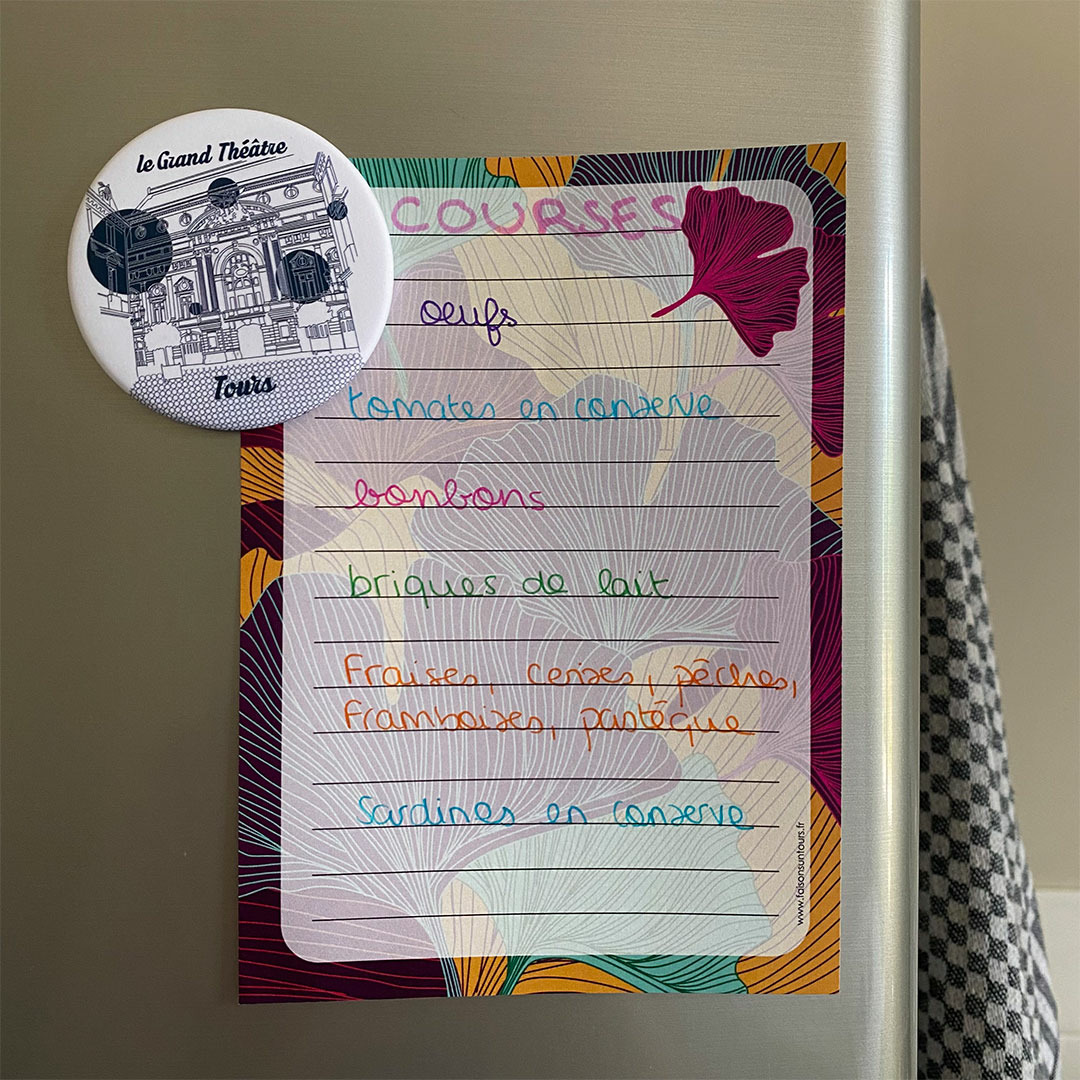 le Grand Théâtre
Tours
COURSES
oeufs
tomates en conserve
bonbons
briques de lait
Fraises, cerises, pêches,
Framboises, pastèque
Sardines en conserve
www.faisonsuntours.fr